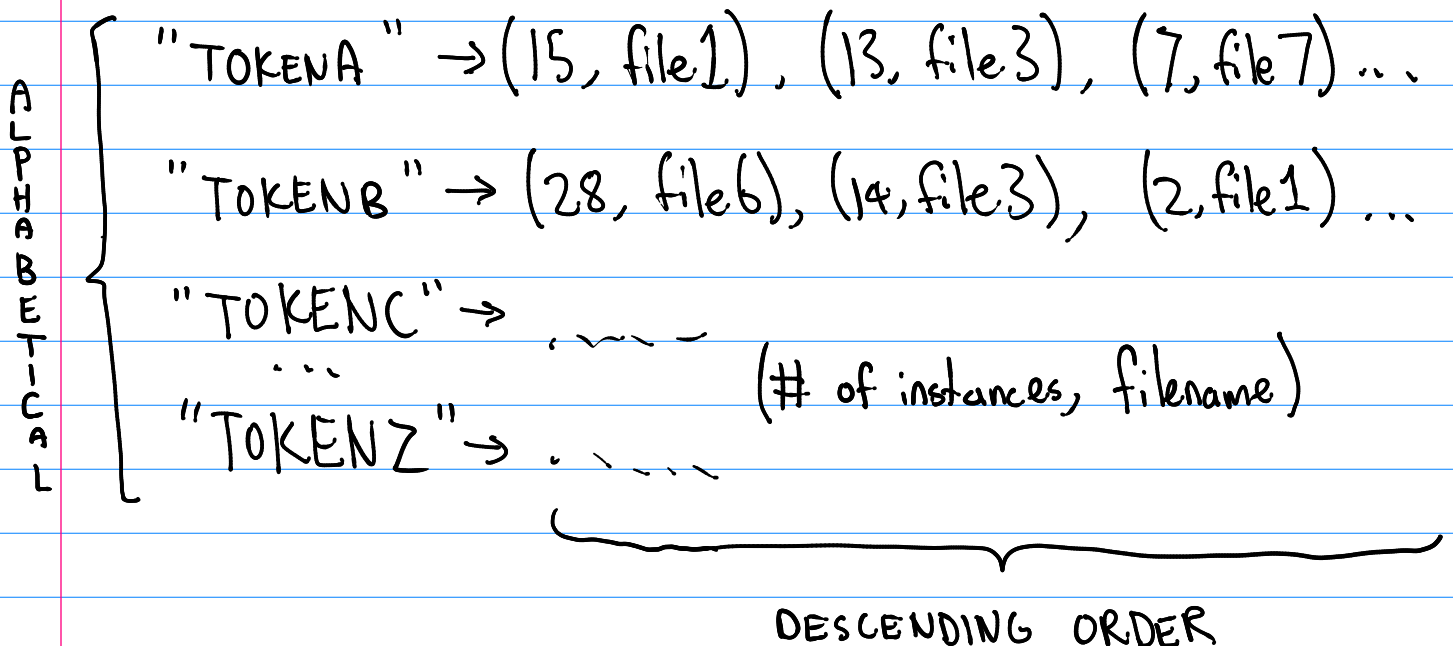 ALPHABETICAL
"TOKENA" → (15, file1), (13, file3), (7, file7) ...
"TOKENB" → (28, file6), (14, file3), (2, file1) ...
"TOKENC" →
...
(# of instances, filename)
"TOKENZ" →
DESCENDING ORDER